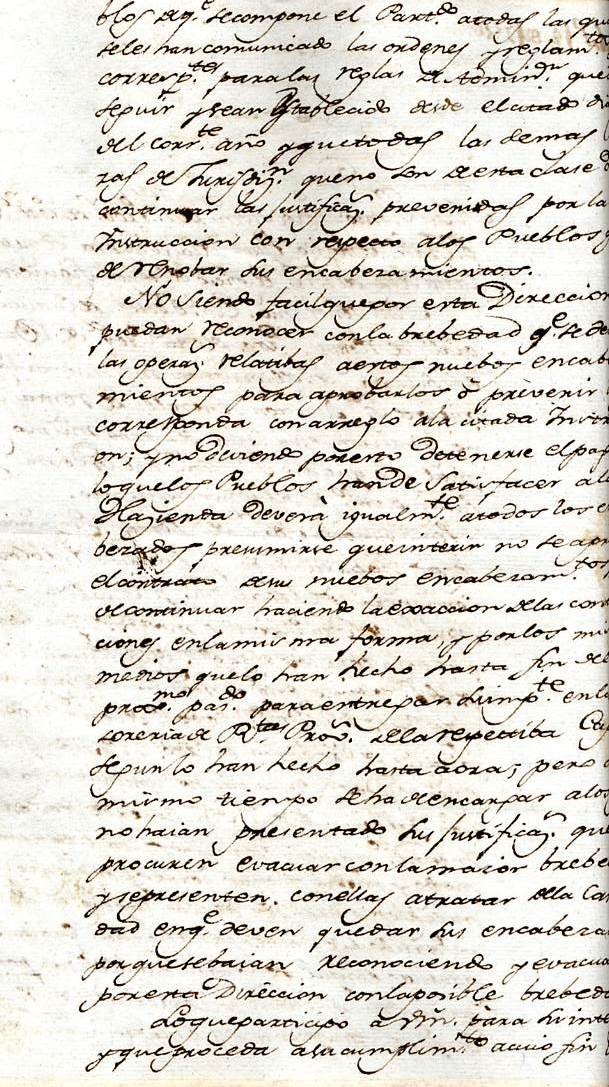 blos de q.e se compone el Part.do a todas las que
se les han comunicado las ordenes y reglam.tos
corresp.tes para las reglas de Admin.on que
seguir y sean establecido desde el citado di
del corr.te año y que todas las demas
zas de Jurisd.n que no son de esta clase d
continuar las justificaz.s prevenidas por la
Instruccion con respecto a los Pueblos q
de renobar sus encabezamientos.
No siendo facil que por esta Direccion
puedan reconocer con la brebedad q.e se de
las operaz.s relatibas a estos nuebos encabe
mientos para aprobarlos ò prèvenir
corresponda con arreglo a la citada Instr
on; y no dviendo por esto detenerse el pag
lo que los Pueblos han de Satisfacer a l
Hazienda deverà igualm.te a todos los e
bezados prevenirse que interin no se apr
el contrato de sus nuebos encabezam.tos
de continuar haciendo la exaccion de las con
ciones en la misma forma, y por los mi
medios que lo han hecho hasta fin del
prox.mo pas.do para entregar su imp.te en la
soreria de R.tas Prov.s de la respectiba C
segun lo han hecho hasta aora; pero a
mismo tiempo se ha de encargar a los
no haian presentado sus justificaz.s que
procuren evacuar con la maior brebe
y se presenten con ellas a tratar de la Ca
dad en q.e deven quedar sus encabeza
porque se baian reconociendo y evacua
por esta Direccion con la posible brebeda
Lo que participo a Vm. para su inte
y que proceda a su cumplim.to a cuio fin